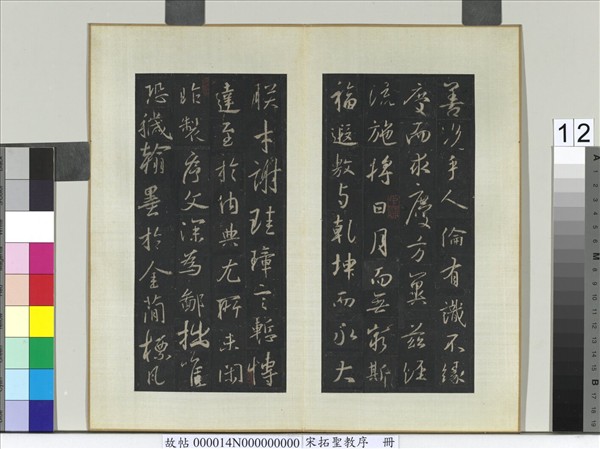 善況乎人倫有識不緣
慶而求慶方冀茲經
流施將日月而無窮斯
福遐敷与乾坤而永大
朕才謝珪璋言慙博
達至於內典尤所未閑
昨製序文深為鄙拙唯
恐穢翰墨於金簡標瓦
12
故帖 000014N000000000 宋拓聖教序 冊